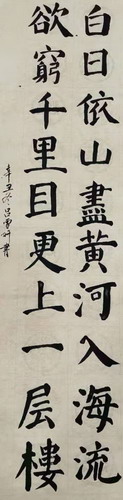 白日依山盡黄河入海流
欲窮千里目更上一层樓
辛丑冬吕雪汀書